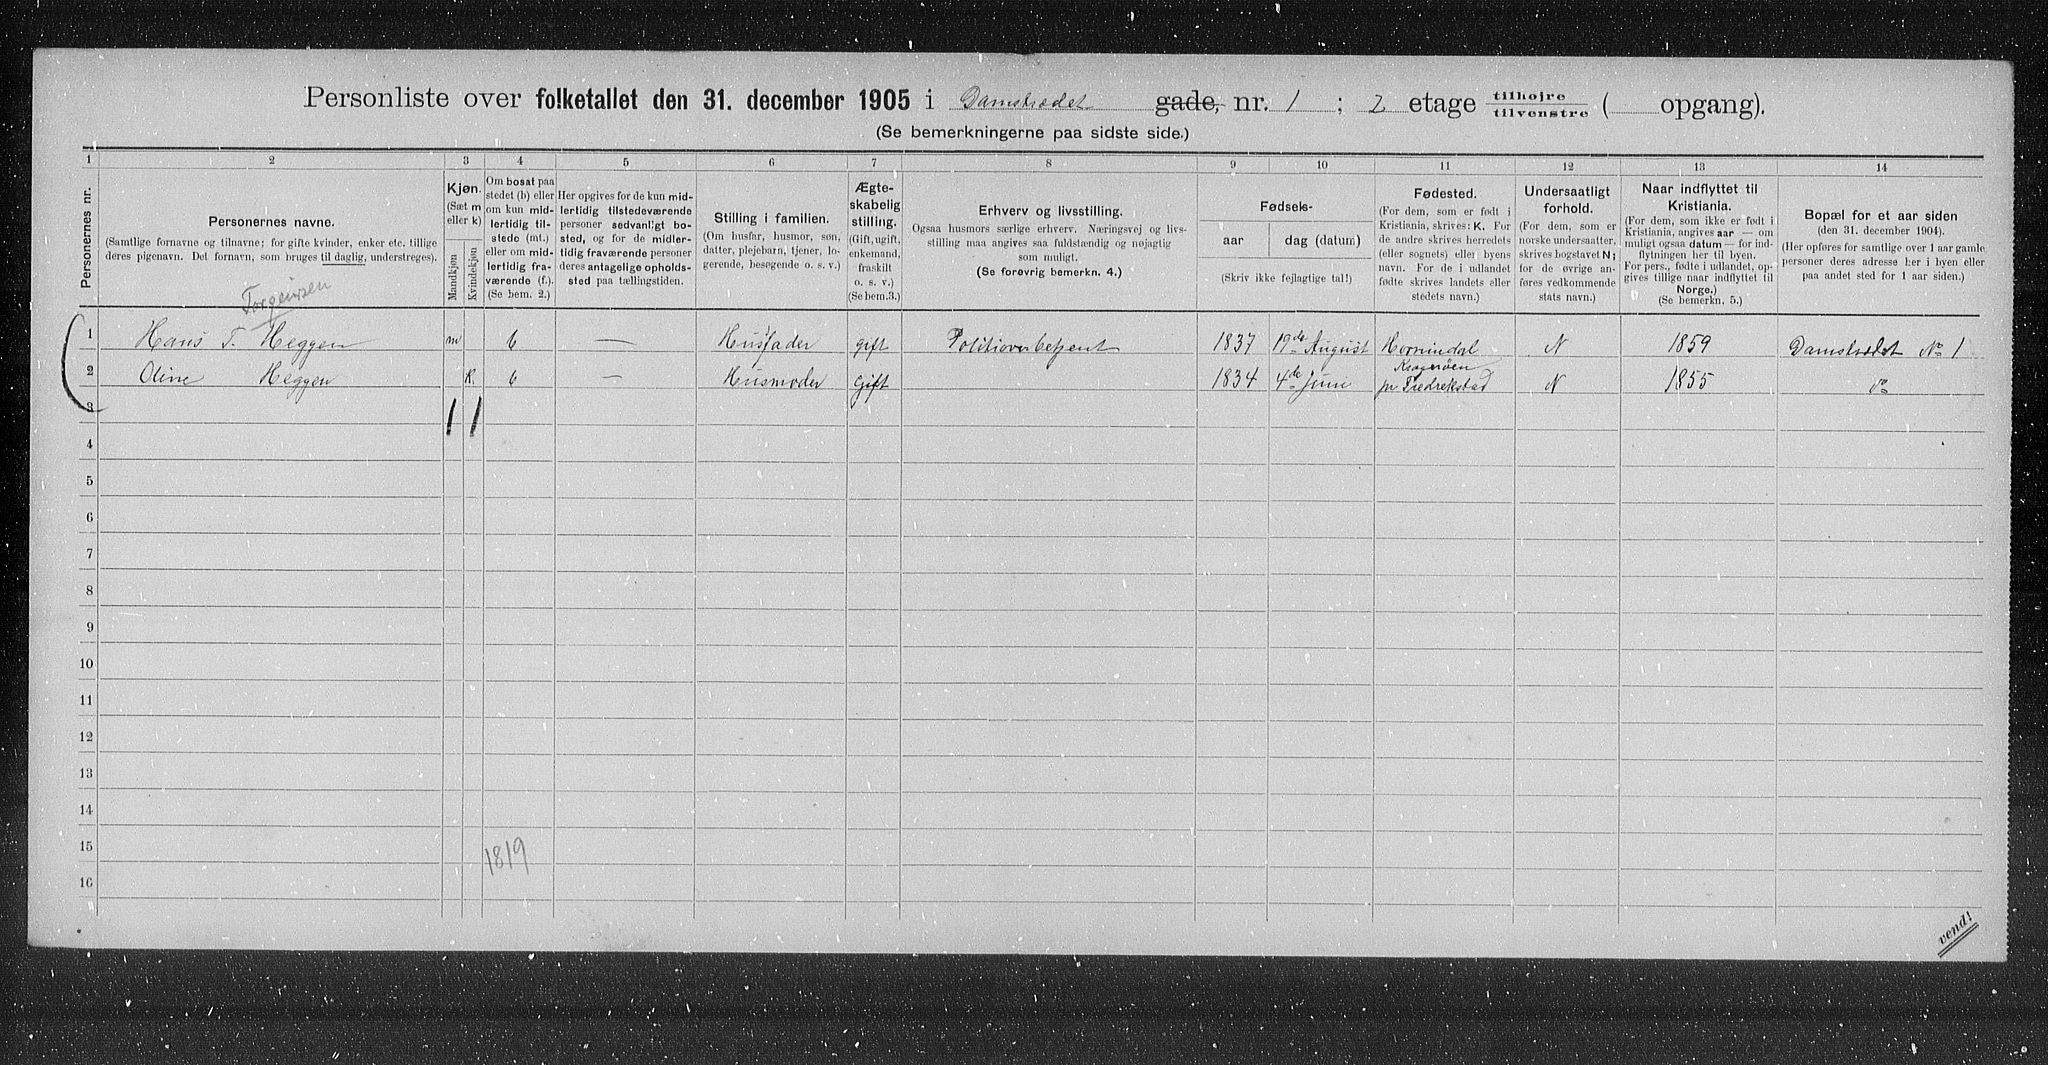 Personliste over folketallet den 31. december 1905 i Damstrædet gade, nr. 1 ; 2 etage tilhøjre tilvenstre ( opgang).
(Se bemerkningerne paa sidste side.)
1 2 3 4 5 6 7 8 9 10 11 12 13 14
Personernes nr.
Personernes navne.
(Samtlige fornavne og tilnavne; for gifte kvinder, enker etc. tillige
deres pigenavn. Det fornavn, som bruges til daglig, understreges).
Kjøn.
(Sæt m
eller k)
Mandkjøn
Kvindekjøn
Om bosat paa
stedet (b) eller
om kun mid-
lertidig til-
stede (mt.)
eller om mid-
lertidig fra-
værende (f.).
(Se bem. 2.)
Her opgives for de kun mid-
lertidig tilstedeværende
personer sedvanligt bo-
sted, og for de midler-
tidig fraværende personer
deres antagelige opholds-
sted paa tællingstiden.
Stilling i familien.
(Om husfar, husmor, søn,
datter, plejebarn, tjener, lo-
gerende, besøgende o. s. v.)
Ægte-
skabelig
stilling.
(Gift, ugift,
enkemand,
fraskilt
o. s. v.)
(Se bem.3.)
Erhverv og livsstilling.
Ogsaa husmors særlige erhverv. Næringsvej og livs-
stilling maa angives saa fuldstændig og nøjagtig
som muligt.
(Se forøvrig bemerkn. 4.)
Fødsels-
aar
dag (datum)
(Skriv ikke fejlagtige tal!)
Fødested.
(For dem, som er født i
Kristiania, skrives: K. For
de andre skrives herredets
(eller sognets) eller byens
navn. For de i udlandet
fødte skrives landets eller
stedets navn.)
Undersaatligt
forhold.
(For dem, som er
norske undersaatter,
skrives bogstavet N;
for de øvrige an-
føres vedkommende
stats navn.)
Naar indflyttet til
Kristiania.
(For dem, som ikke er født i
Kristiania, angives aar — om
muligt ogsaa datum — for ind-
flytningen her til byen.
For pers., fødte i udlandet, op-
gives tillige naar indflyttet til
Norge.)
(Se bemerkn. 5.)
Bopæl for et aar siden
(den 31. december 1904).
(Her opføres for samtlige over 1 aar gamle
personer deres adresse her i byen eller
paa andet sted for 1 aar siden.)
Torgeirsen
1 Hans T. Heggen m b — Husfader gift Politioverbetjent 1837 19de August Hornindal N 1859 Damstrædet No 1
2 Oline Heggen K. b — Husmoder gift 1834 4de Juni Kragerøen pr Fredrekstad N 1855 do
3 1 1
4
5
6
7
8
9
10
11
12
13
14
15
16
1819
vend!